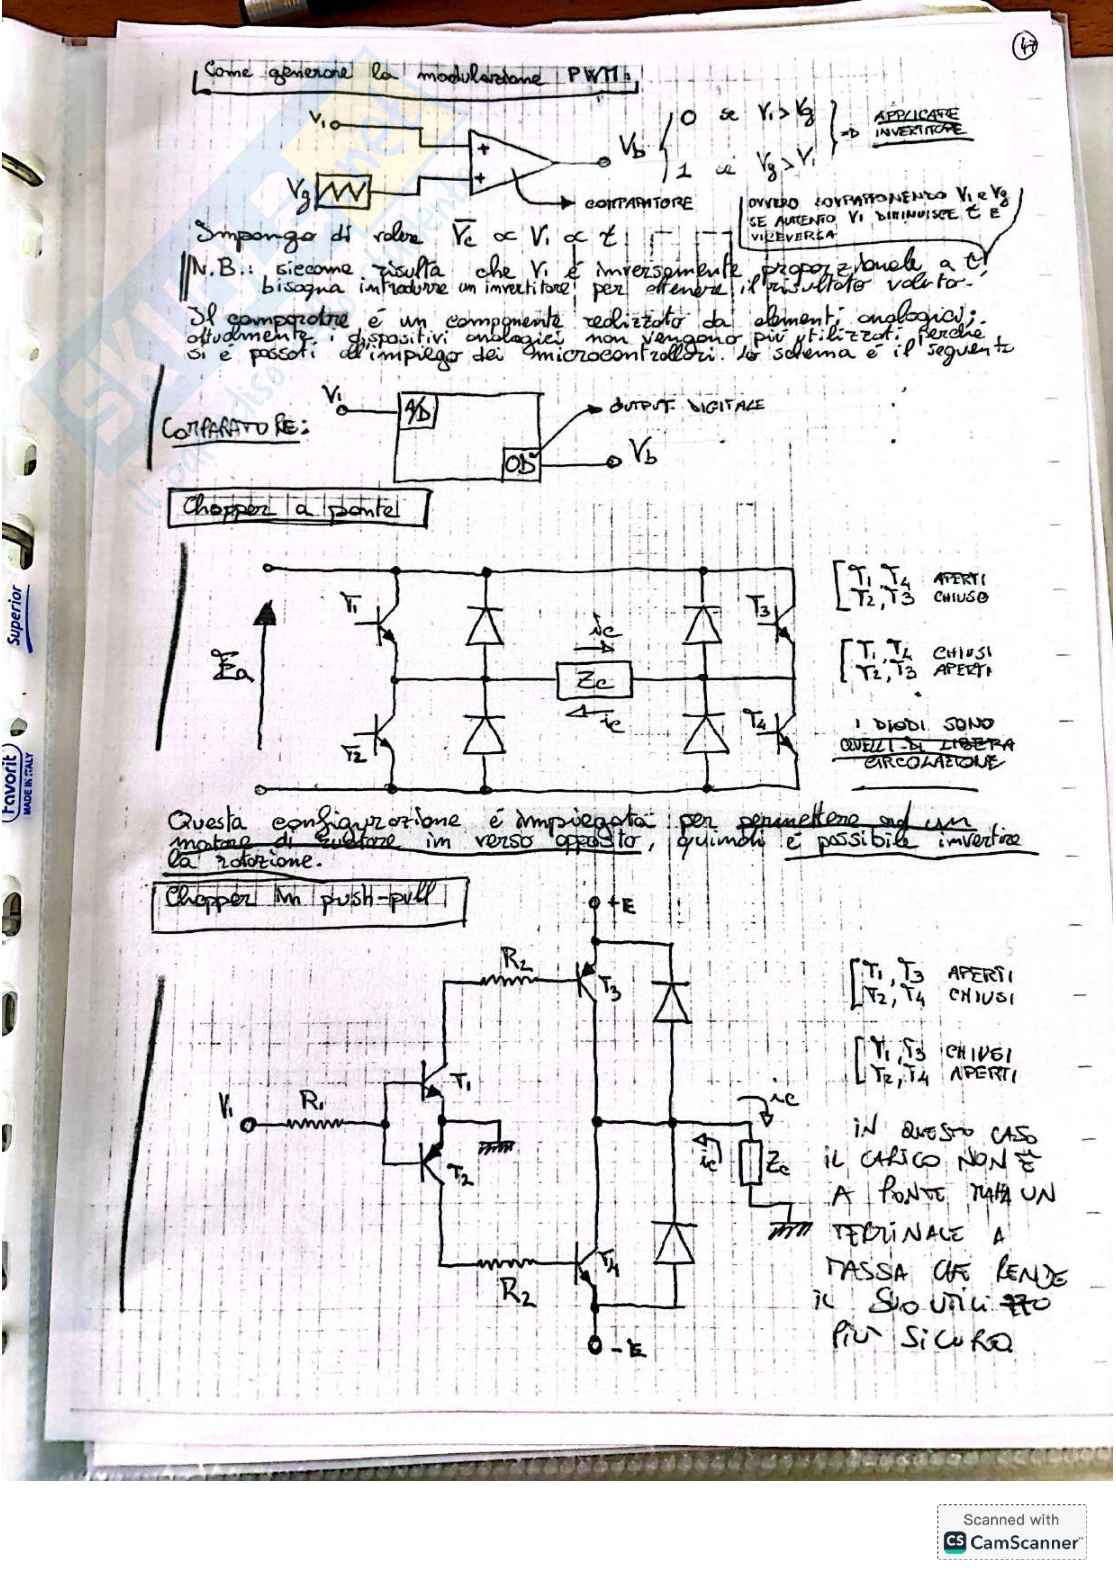 47
Come generare la modulazione PWM:
V₁
Vg
+
+
Vb
0 se V₁ > Vg
1 se Vg > V₁
=D APPLICARE
INVERTITORE
COMPARATORE
OVVERO SOVRAPPONENDO V₁ e Vg
SE AUMENTO V₁ DIMINUISCE t E
VICEVERSA
Impongo di voler V̅c ∝ V₁ ∝ t
N.B.: siccome risulta che V₁ é inversamente proporzionale a t
bisogna introdurre un invertitore per ottenere il risultato voluto.
Il comparatore é un componente realizzato da elementi analogici;
attualmente i dispositivi analogici non vengono più utilizzati perché
si é passati all'impiego dei microcontrollori. Lo schema é il seguente
COMPARATORE:
V₁
A/D
OD
OUTPUT DIGITALE
Vb
Chopper a ponte
Ea
T₁
T₂
T₃
T₄
ic
Zc
ic
T₁, T₄ APERTI
T₂, T₃ CHIUSO
T₁, T₄ CHIUSI
T₂, T₃ APERTI
I DIODI SONO
QUELLI DI LIBERA
CIRCOLAZIONE
Questa configurazione é impiegata per permettere ad un
motore di ruotare in verso opposto, quindi é possibile invertire
la rotazione.
Chopper in push-pull
+E
R₂
T₃
T₁
V₁
R₁
T₂
R₂
T₄
-E
ic
ic
Zc
T₁, T₃ APERTI
T₂, T₄ CHIUSI
T₁, T₃ CHIUSI
T₂, T₄ APERTI
IN QUESTO CASO
IL CARICO NON É
A PONTE MA HA UN
TERMINALE A
MASSA CHE RENDE
IL SUO UTILIZZO
PIÙ SICURO
Superior
Favorit
MADE IN ITALY
SKUOLA.net
il paradiso dello studente
Scanned with
CS CamScanner